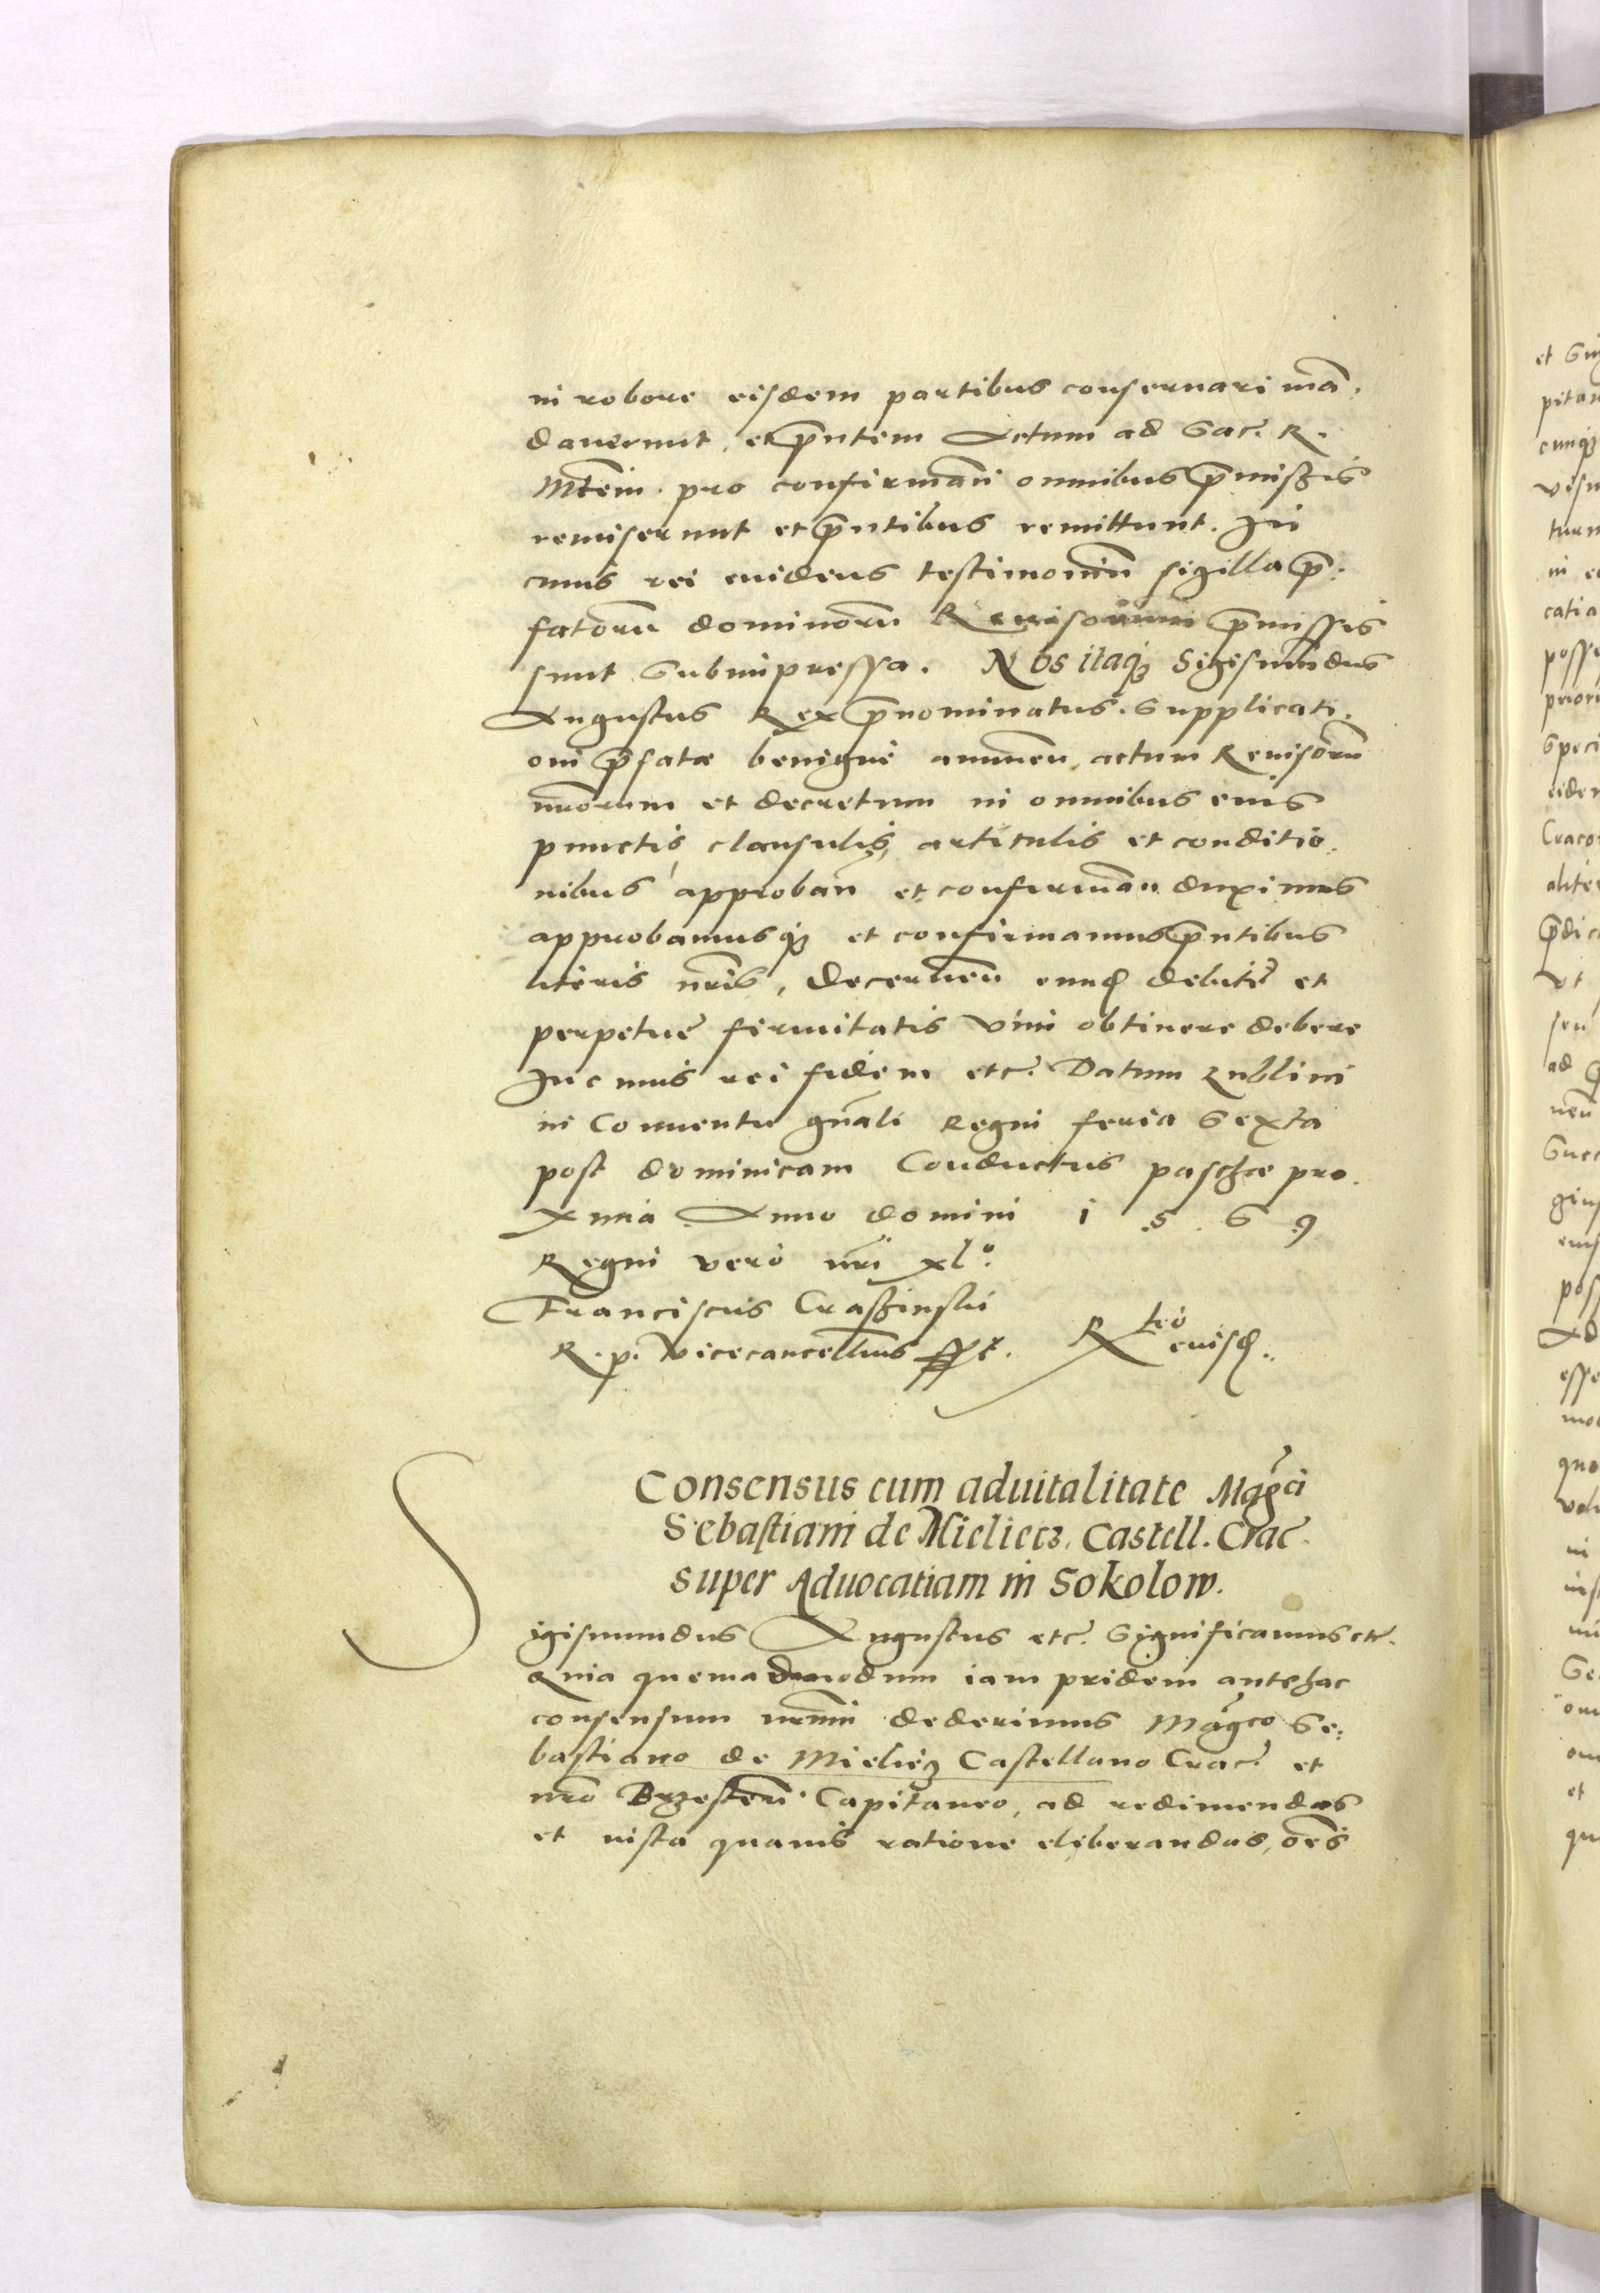 in robore eisdem partibus conseruari man̄.
dauerunt, et p̄ntem Actum ad Sac. R.
Mtem. pro confirmañ omnibus p̄missis
remiserunt et p̄ntibus remittunt. In
cuius rei euidens testimoniū sigilla p̄:
fatorū dominorū Reuisorum p̄missis
sunt Subimpressa. Nos itaq3 Sigismūdus
Augustus Rex p̄nominatus. Supplicati.
oni p̄fatæ benignè annuen̄, actum Reuisorū
nr̄orum et decretum in omnibus eius
punctis, clausulis, articulis et conditio.
nibus approban̄ et confirman̄ duximus
approbamusq3 et confirmamus p̄ntibus
literis nr̄is, Decernen̄ eund debitę et
perpetuę firmitatis vim obtinere debere
In cuius rei fidem etc. Datum Lublini
in Conuentu gn̄ali Regni feria Sexta
post dominicam Conductus paschæ pro.
xima Anno domini 1 5 6 9
Regni vero nr̄i xl°.
Franciscus Crassinski
R. p. Vicecancellarius sst. Rtio eiusd.
Consensus cum aduitalitate Mag̃ci
Sebastiani de Mielecz, Castell. Crac.
super Aduocatiam in Sokolow.
Sigismundus Augustus etc. Significamus etc.
Quia quemadmodum iam pridem antehac
consensum nr̄um dederimus Mag̃co Se:
bastiano de Mieliecz Castellano Crac. et
nr̄o Brzesten̄. Capitaneo, ad redimendas
et iusta quauis ratione eliberandas, oēs